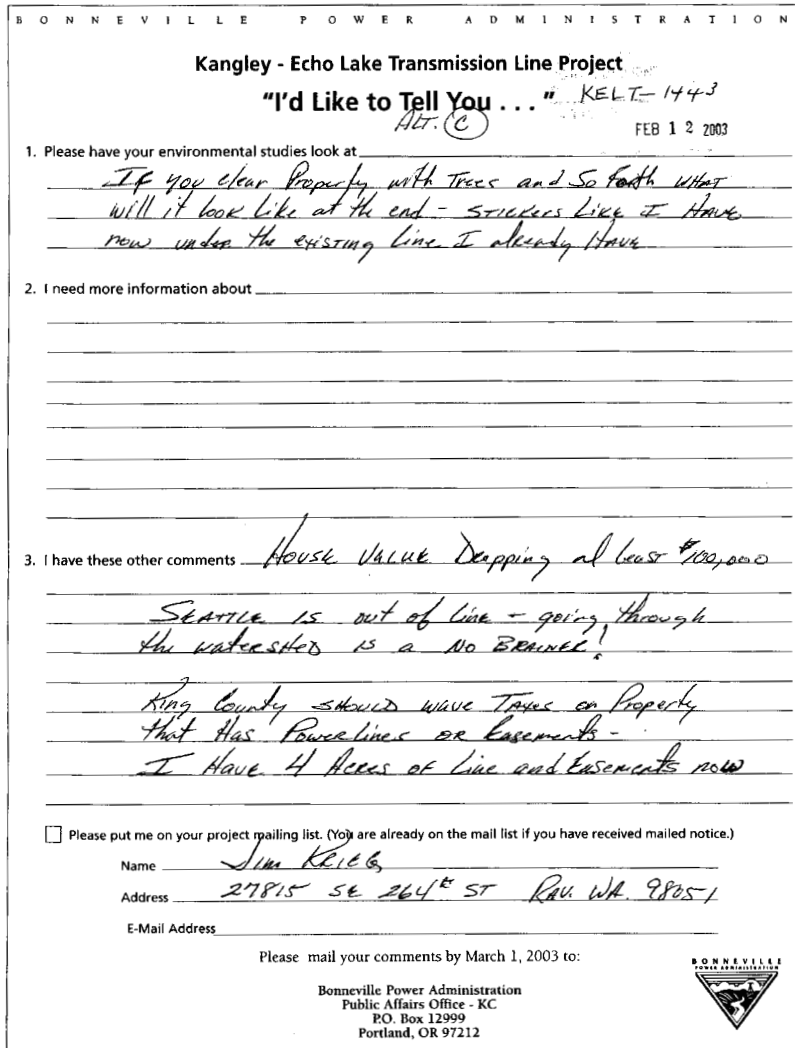 BONNEVILLE POWER ADMINISTRATION
Kangley - Echo Lake Transmission Line Project
"I'd Like to Tell You . . . " KELT-1443
ALT. C
FEB 12 2003
1. Please have your environmental studies look at
If you clear Property with Trees and So Forth WHAT
will it look Like at the end - STICKERS LIKE I HAVE
now under the existing line I already HAVE
2. I need more information about
3. I have these other comments HOUSE VALUE Dropping at least $100,000
SEATTLE IS out of line - going through
the watershed IS a NO BRAINER!
King County SHOULD wave TAXES on Property
that Has Powerlines OR Easements -
I HAVE 4 Acres of Line and Easements now
Please put me on your project mailing list. (You are already on the mail list if you have received mailed notice.)
Name Jim KRIEG
Address 27815 SE 264th ST RAV. WA. 98051
E-Mail Address
Please mail your comments by March 1, 2003 to:
Bonneville Power Administration
Public Affairs Office - KC
P.O. Box 12999
Portland, OR 97212
BONNEVILLE
POWER ADMINISTRATION